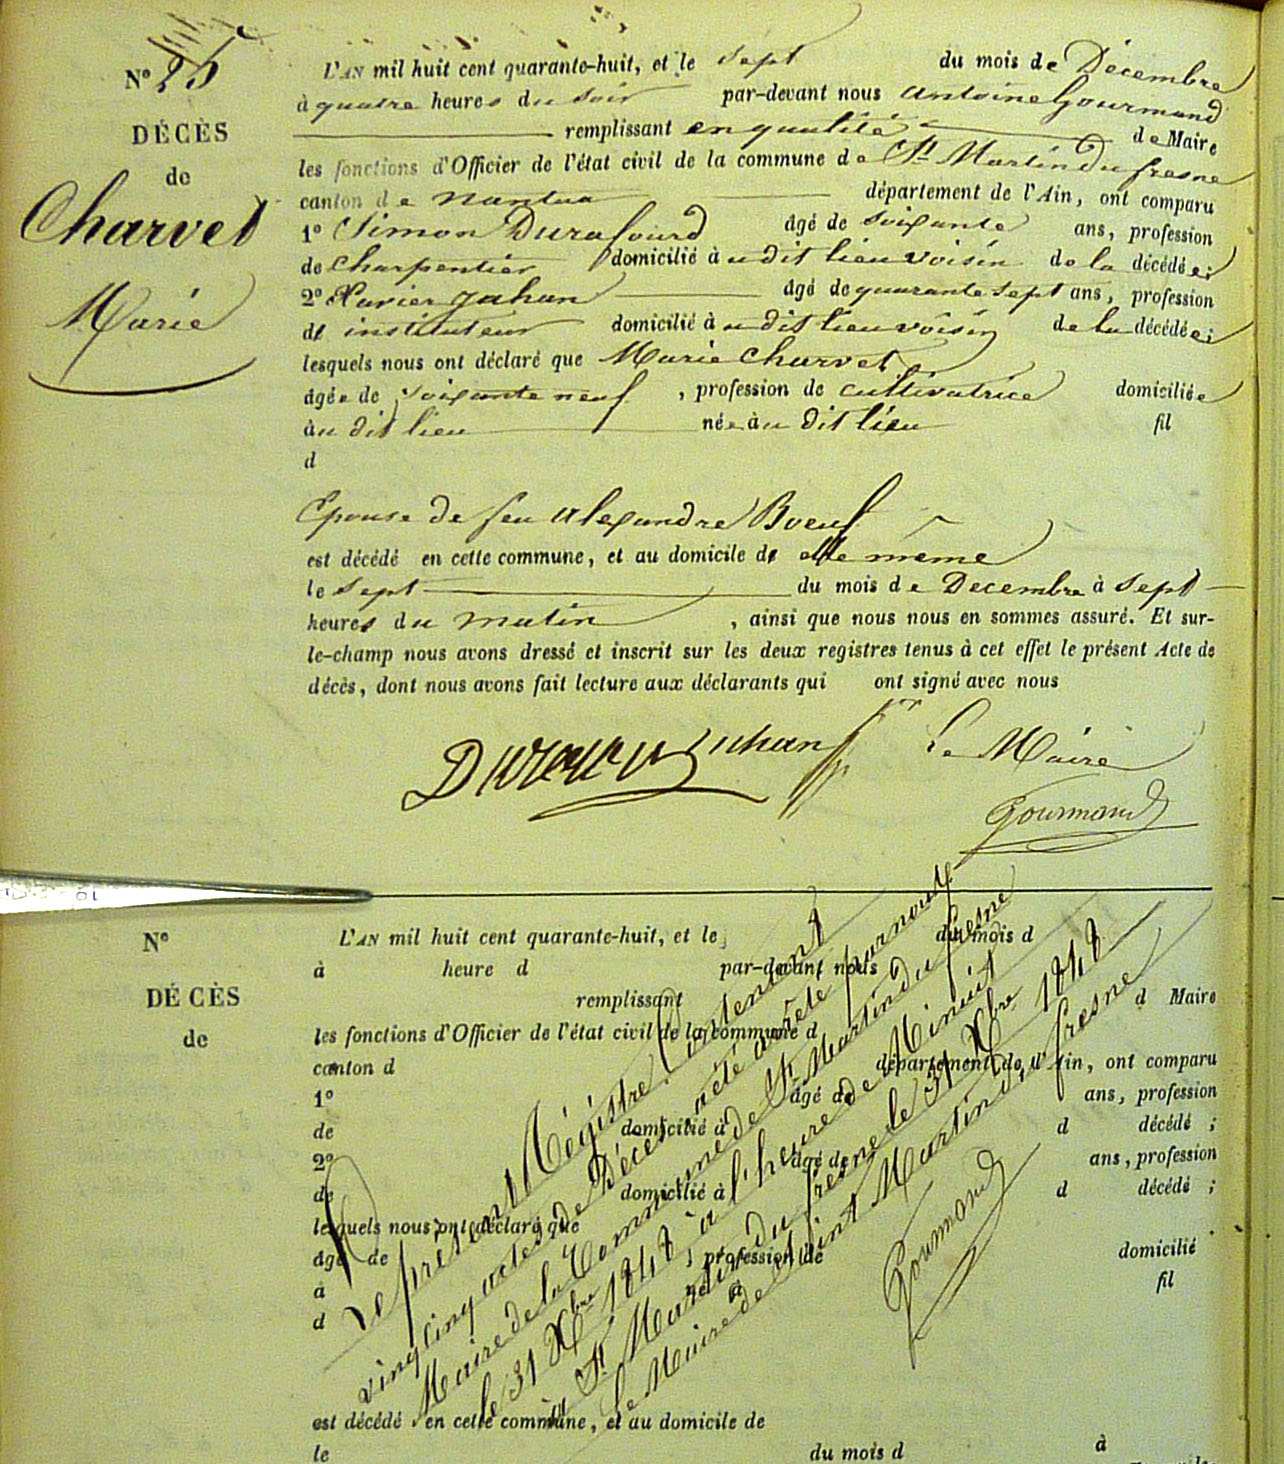 N° 25
DÉCÈS
de
Charvet
Marie
L'AN mil huit cent quarante-huit, et le sept du mois de Décembre
à quatre heures du soir par-devant nous antoine Gourmand
remplissant en qualité de Maire
les fonctions d'Officier de l'état civil de la commune de St Martin du fresne
canton de nantua département de l'Ain, ont comparu
1° Simon Durafourd âgé de soixante ans, profession
de charpentier domicilié à u dit lieu voisin de la décédée;
2° Xavier Juhan âgé de quarante sept ans, profession
de instituteur domicilié à u dit lieu voisin de la décédée;
lesquels nous ont déclaré que Marie Charvet
âgée de soixante neuf , profession de cultivatrice domiciliée
àu dit lieu née àu dit lieu fil
d
Epouse de feu alexandre Boeuf
est décédé en cette commune, et au domicile de elle même
le sept du mois de Decembre à sept
heures du matin , ainsi que nous nous en sommes assuré. Et sur-
le-champ nous avons dressé et inscrit sur les deux registres tenus à cet effet le présent Acte de
décès, dont nous avons fait lecture aux déclarants qui ont signé avec nous
Juhan Le Maire
Gourmand
N°
DÉCÈS
de
L'AN mil huit cent quarante-huit, et le du mois d
à heure d par-devant nous
remplissant d Maire
les fonctions d'Officier de l'état civil de la commune d
canton d département de l'Ain, ont comparu
1° âgé de ans, profession
de domicilié à d décédé ;
2° âgé de ans, profession
de domicilié à d décédé ;
lesquels nous ont déclaré que
âgé de , profession de domicilié
à né à fil
d
Le présent Régistre Contenant
vingt cinq actes de Décès a été arrêté par nous
Maire de la Commune de St Martin du fresne
le 31 Xbre 1848 à l'heure de Minuit
à St Martin du fresne le 31 Xbre 1848
Le Maire de Saint Martin du fresne
Gourmand
est décédé en cette commune, et au domicile de
le du mois d à